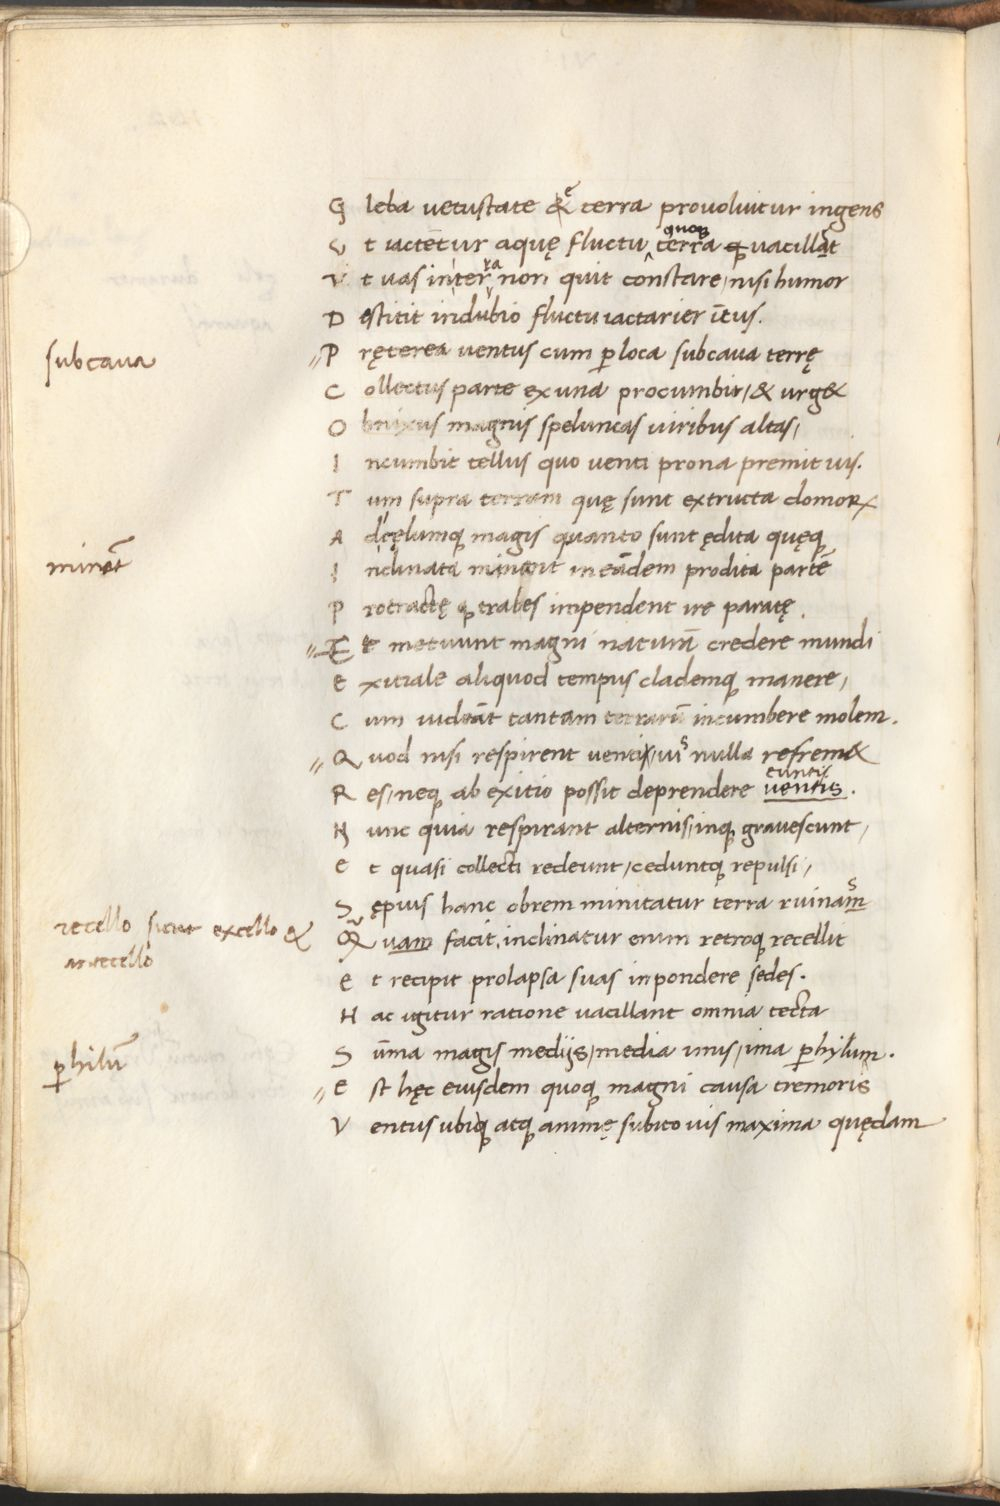 G leba vetustate & e terra provoluitur ingens
V t iactetur aquę fluctu quoq terra q vacillat
V t vas inter ra non quit constare, nisi humor
D estitit in dubio fluctu iactarier ītus.
subcava
P ręterea ventus cum ꝑ loca subcava terrę
C ollectus parte ex una procumbit, & urg&
O bnixus magnis speluncas viribus altas,
I ncumbit tellus quo venti prona premit vis.
T um supra terram quę sunt extructa domoꝝ
A d cęlumq magis quanto sunt ędita quęq
minēt
I nclinata minent in eādem prodita partē
P rotractę q trabes impendent ire paratę.
E t metuunt magni naturā credere mundi
E xitiale aliquod tempus clademq manere,
C um videāt tantam terrarū incumbere molem.
Q uod nisi respirent venti, vis nulla refren&
R es, neq ab exitio possit deprendere ventis euntis.
N unc quia respirant alternis, inq gravescunt,
E t quasi collecti redeunt, ceduntq repulsi,
S ępius hanc obrem minitatur terra ruinam s
recello sicut excello &
antecello
Q uam facit, inclinatur enim retroq recellit
E t recipit prolapsa suas in pondere sedes.
H ac igitur ratione vacillant omnia tecta
ꝑhilū
S ūma magis mediis, media imis, ima ꝑhylum.
E st hęc eiusdem quoq magni causa tremoris
V entus ubi q atq animę subito vis maxima quędam